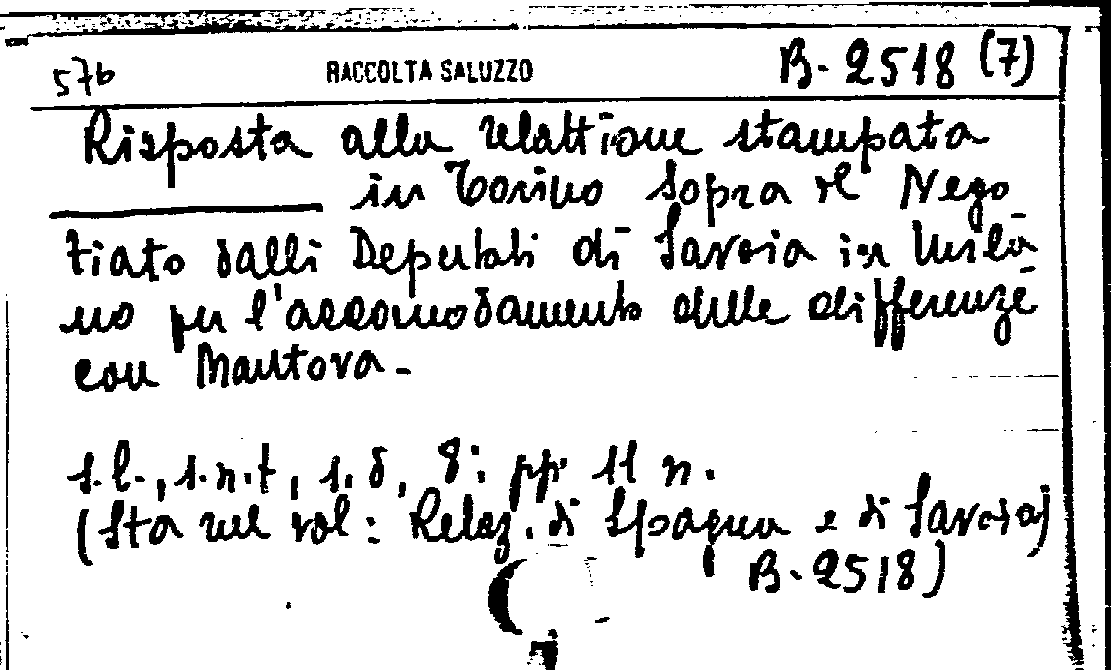 57b RACCOLTA SALUZZO B-2518 (7)
Risposta alla relattione stampata
in Torino sopra il Nego
tiato dalli Deputati di Savoia in Mila
no per l'accomodamento delle differenze
con Mantova.
s.l., s.n.t, s.d, 8: pp. 11 n.
(Sta nel vol: Relaz. di Spagna e di Savoia)
B-2518)